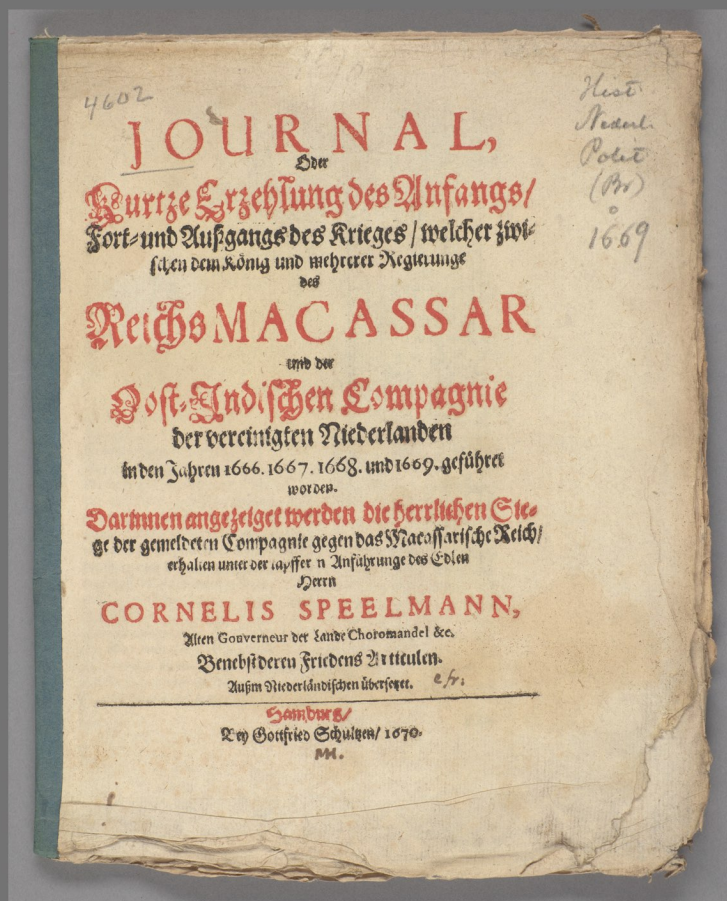 4602
Hist.
Nederl.
Polit
(Br)
1669
JOURNAL,
Oder
Kurtze Erzehlung des Anfangs/
Fort- und Außgangs des Krieges / welcher zwi-
schen dem König und mehrerer Regierunge
des
Reichs MACASSAR
und der
Oost-Indischen Compagnie
der vereinigten Niederlanden
in den Jahren 1666. 1667. 1668. und 1669. geführet
worden.
Darinnen angezeiget werden die herrlichen Sie-
ge der gemeldeten Compagnie gegen das Macassarische Reich/
erhalten unter der tapffern Anführunge des Edlen
Herrn
CORNELIS SPEELMANN,
Alten Gouverneur der Lande Choromandel &c.
Benebst deren Friedens Articulen.
Außm Niederländischen übersetzet.
Hamburg/
Bey Gottfried Schultzen/ 1670.